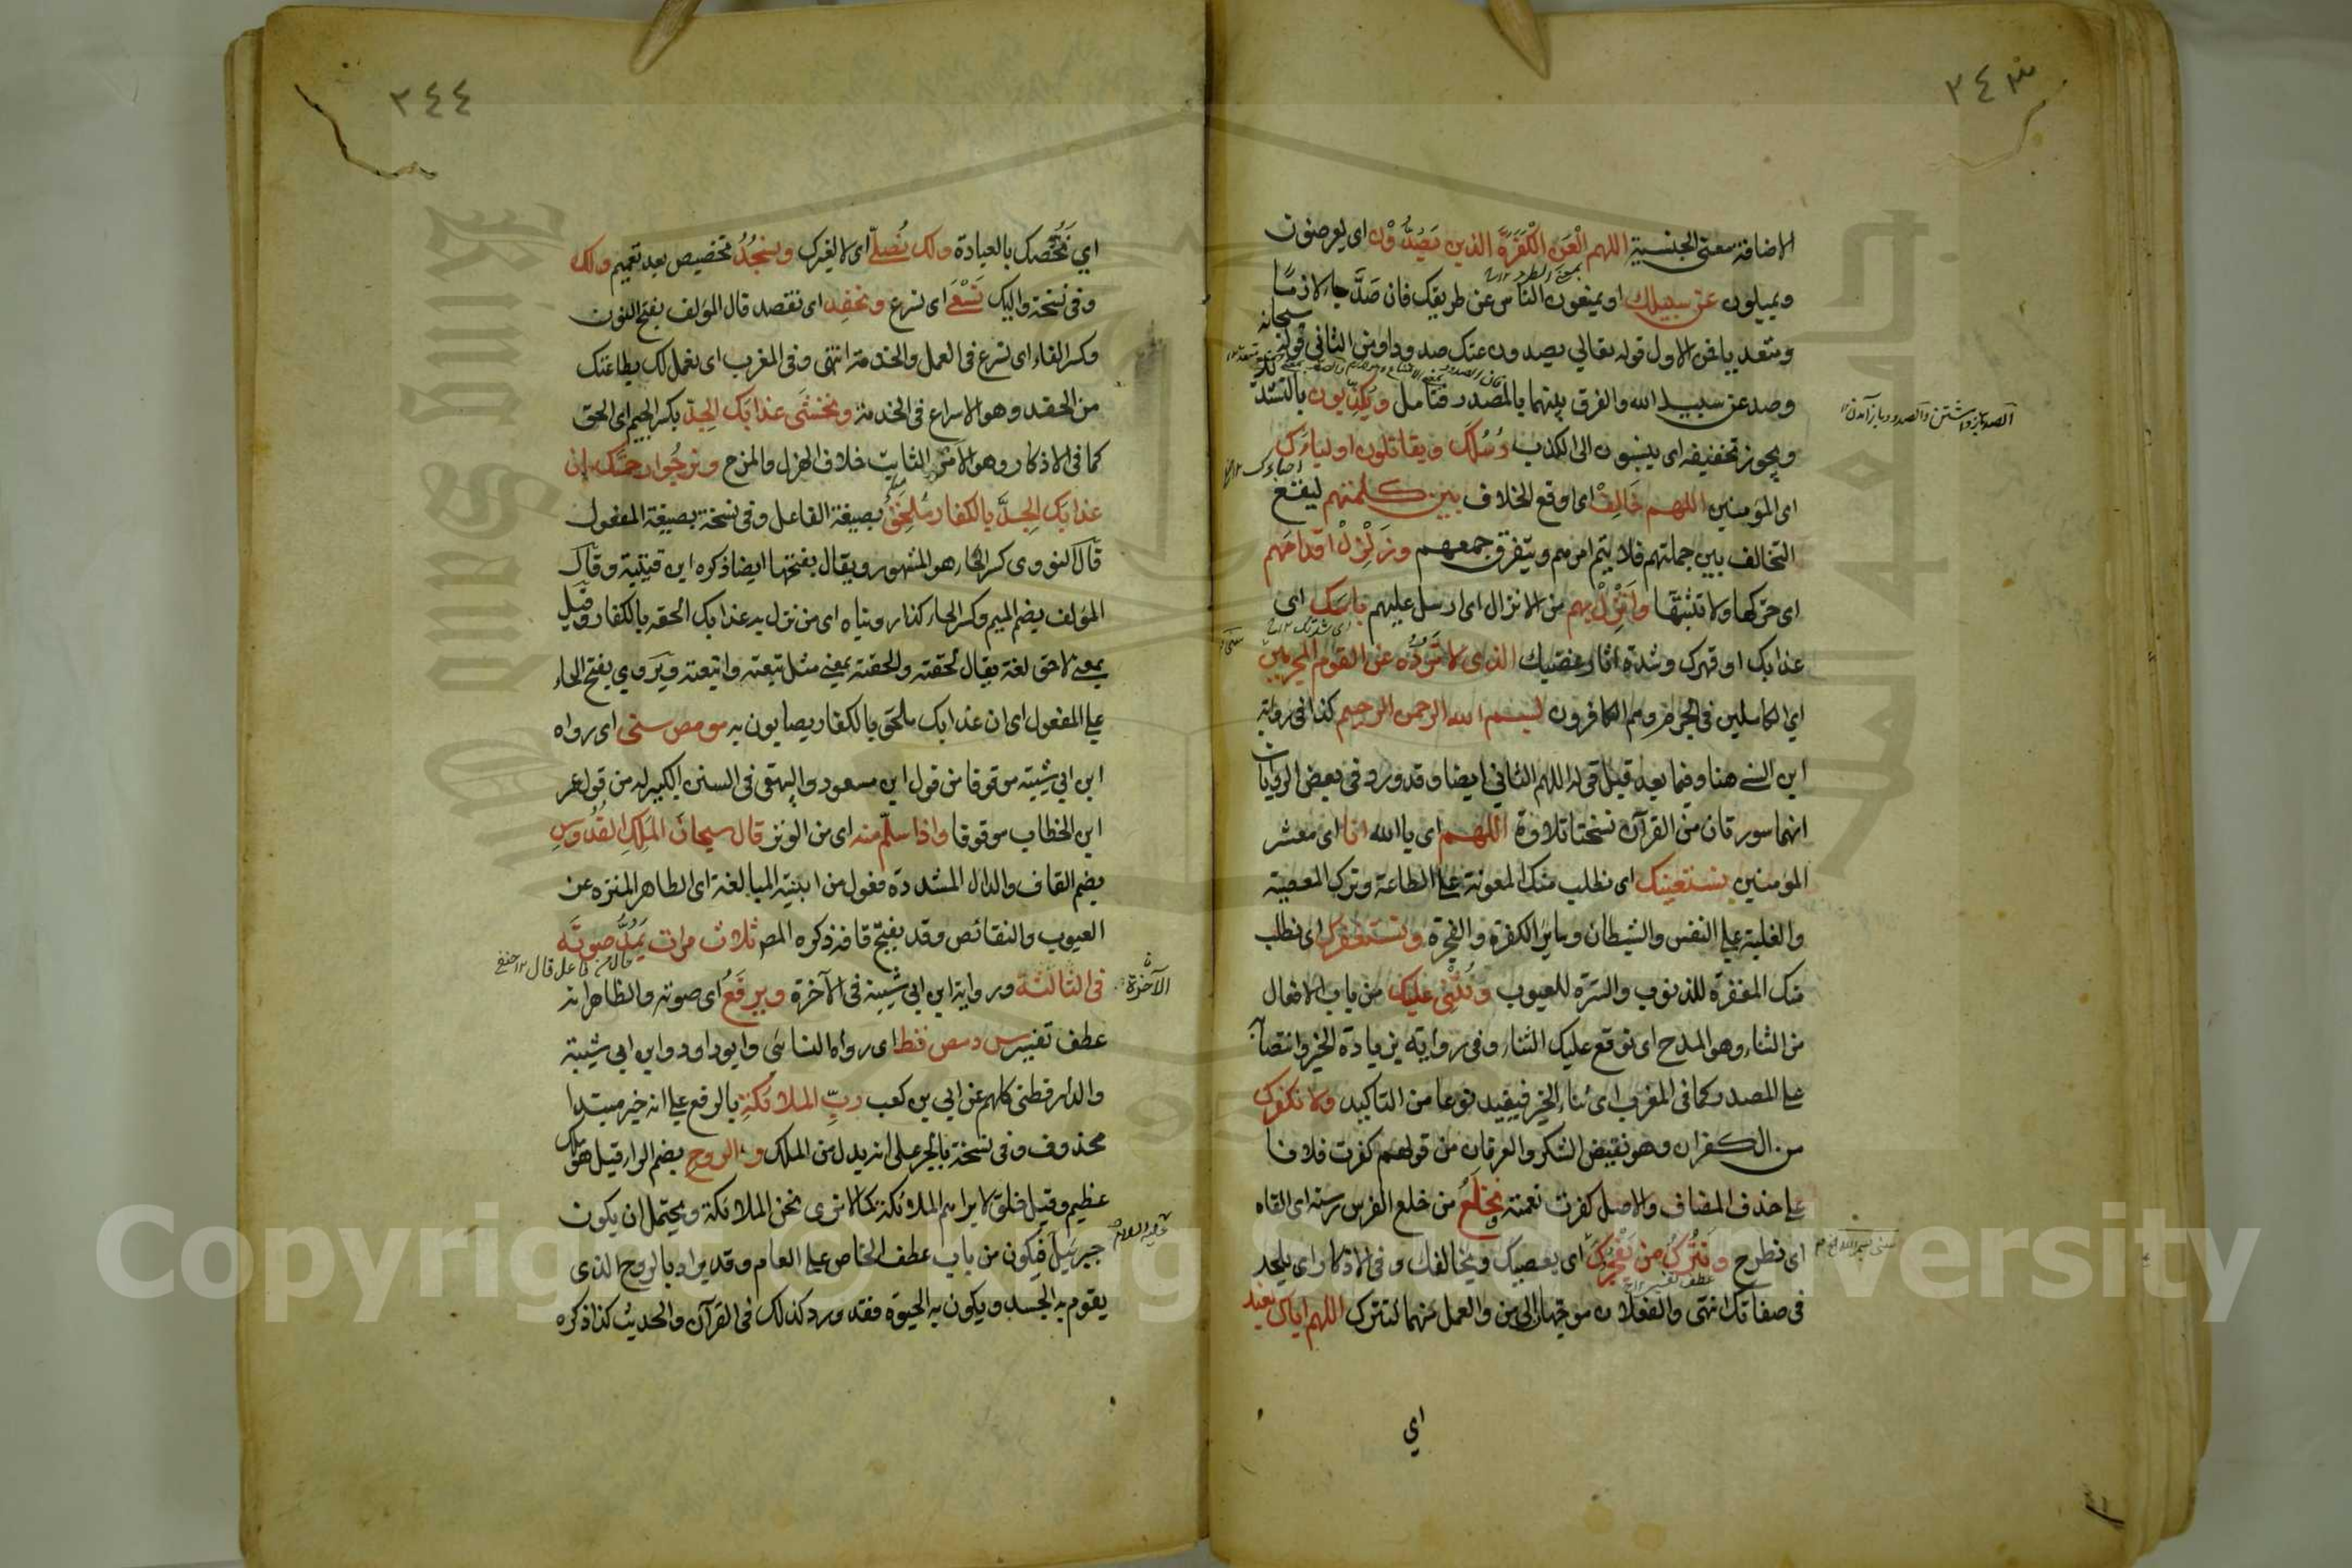 ٢٤٣
الاضافة معنى الجنسية اللهم الْعَنِ الْكَفَرَةَ الذين يَصُدُّوْن اى يعرضون
ويميلون عن سبيلك او يمنعون الناس عن طريقك فان صَدَّ جاء لازمًا
ومتعديا فمن الاول قوله تعالي يصدون عنك صدودا ومن الثاني قوله سبحانه
وصد عن سبيل الله والفرق بينهما بالمصدر فتامل ويُكَذِّبون بالتشديد
ويجوز تخفيفه اى ينسبون الى الكذب رُسُلَك ويقاتلون اولياءَك
اى المؤمنين اللهم خَالِفْ اى اوقع الخلاف بين كلمتهم ليقع
التخالف بين جملتهم فلا يتم امرهم ويتفرق جمعهم وزَلْزِلْ اقدامَهم
اى حركها ولا تثبتّها وأَنْزِلْ بهم من الانزال اى ارسل عليهم باسَك اى
عذابك او قهرك وشدة اثار غضبك الذى لا تَرُدُّه عن القوم المجرمين
اي الكاملين فى الجرم وهم الكافرون بسم الله الرحمن الرحيم كذا فى رواية
ابن السنى هنا وفيما بعد قبل قوله اللهم الثاني ايضا وقد ورد فى بعض الروايات
انهما سورتان من القرآن نسختا تلاوة اللهم اى يا الله انا اى معشر
المؤمنين نستعينك اى نطلب منك المعونة على الطاعة وترك المعصية
والغلبة على النفس والشيطان وسائر الكفرة والفجرة ونستغفرك اى نطلب
منك المغفرة للذنوب والسترة للعيوب ونُثْنِى عليك من باب الافعال
من الثناء وهو المدح اى نوقع عليك الثناء وفى رواية بزيادة الخير وانتصابه
على المصدر كما فى المغرب اى ثناء الخير فيفيد نوعا من التاكيد ولا نكفرك
من الكفران وهو نقيض الشكر والعرفان من قولهم كفرت فلانا
على حذف المضاف والاصل كفرت نعمته ونخلَعُ من خلع الفرس رسنه اى القاه
اى نطرح ونَتْرُكُ من يَفْجُرُك اى يعصيك ويخالفك وفى الاذكار اى يلحد
فى صفاتك انتهى والفعلان موجهان الى من والعمل منهما لنترك اللهم اياك نعبد
اي
٢٤٤
اي نَخُصّك بالعبادة ولك نُصلّى اى لا لغيرك ونسجُدُ تخصيص بعد تعميم ولك
وفى نسخة واليك نَسْعَى اى نسرع ونحفِد اى نقصد قال المؤلف بفتح النون
وكسر الفاء اى نسرع فى العمل والخدمة انتهى وفى المغرب اى نعمل لك بطاعتك
من الحفد وهو الاسراع فى الخدمة ونخشَى عذابَك الجِدّ بكسر الجيم اى الحق
كما فى الاذكار وهو الامر الثابت خلاف الهزل والمزح ونرجُوا رحمتَك ان
عذابَك الجِدَّ بالكفار مُلحِقٌ بصيغة الفاعل وفى نسخة بصيغة المفعول
قال النووى كسر الحاء هو المشهور ويقال بفتحها ايضا ذكره ابن قتيبة وقال
المؤلف بضم الميم وكسر الحاء كذا رويناه اى من نزل به عذابك الحقه بالكفار وقيل
بمعنى لاحق لغة يقال لحقته والحقته بمعنى مثل تبعته واتبعته ويروي بفتح الحاء
على المفعول اى ان عذابك ملحق بالكفار ويصابون به مو مص سنى اى رواه
ابن ابي شيبة موقوفا من قول ابن مسعود والبيهقى فى السنن الكبير له من قول عمر
ابن الخطاب موقوفا واذا سلّم منه اى من الوتر قال سبحان المَلِكِ القُدُّوسِ
بضم القاف والدال المشددة فعول من ابنية المبالغة اى الطاهر المنزه عن
العيوب والنقائص وقد يفتح قافه ذكره المص ثلاث مرات يَمُدُّ صوتَه
فى الثالثة ورواية ابن ابي شيبة فى الآخرة ويرفَعُ اى صوته والظاهر انه
عطف تفسير س د مص قط اى رواه النسائى وابوداود وابن ابي شيبة
والدارقطنى كلهم عن ابي بن كعب ربِّ الملائكةِ بالرفع على انه خبر مبتدا
محذوف وفى نسخة بالجر على انه بدل من الملك والروح بضم الراء قيل هو ملك
عظيم وقيل خلق لا يراهم الملائكة كما لا نرى نحن الملائكة ويحتمل ان يكون
جبرئيل فيكون من باب عطف الخاص على العام وقد يراد بالروح الذى
يقوم به الجسد ويكون به الحيوة فقد ورد كذلك فى القرآن والحديث كذا ذكره
الآخرة
عليه السلام
Copyright © King Saud University